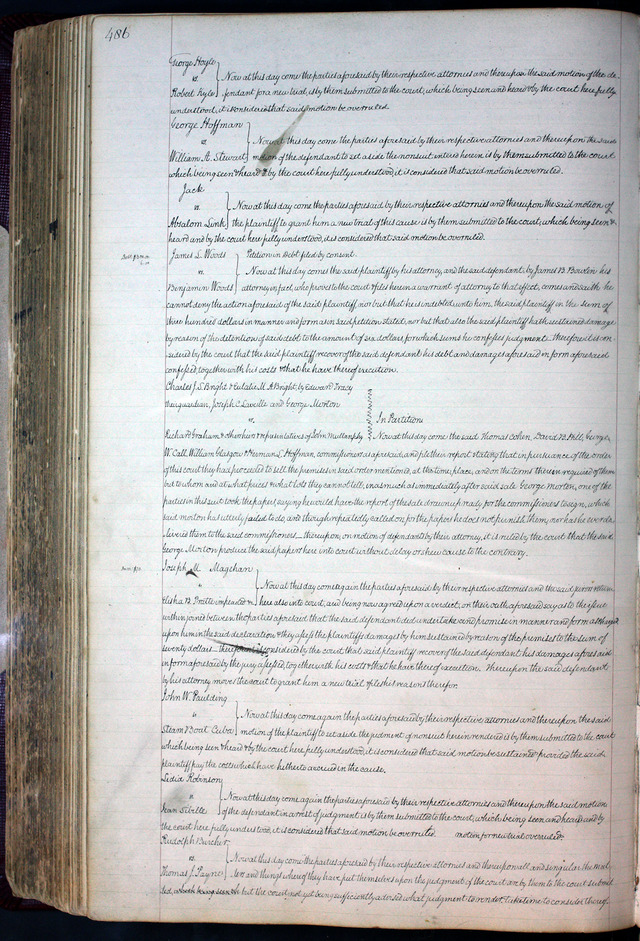 486
George Hoyle
vs. Now at this day come the parties aforesaid by their respective attornies and thereupon the said motion of the de-
Robert Kyle fendant for a new trial, is by them submitted to the court, which being seen and heard & by the court here fully
understood, it is considered that said motion be overruled.
George Hoffman
vs Now at this day come the parties aforesaid by their respective attornies and thereupon the said
William A. Stewart motion of the defendant to set aside the nonsuit entered herein, is by them submitted to the court
which being seen & heard & by the court here fully understood, it is considered that said motion be overruled.
Jack
vs. Now at this day come the parties aforesaid by their respective attornies and thereupon the said motion of
Absalom Link the plaintiff to grant him a new trial of this cause is by them submitted to the court, which being seen &
heard and by the court here fully understood, it is considered that said motion be overruled.
James L. Woods Petition in Debt filed by consent.
vs. Now at this day comes the said plaintiff by his attorney, and the said defendant, by James B. Bowlin his
Benjamin Woods attorney in fact, who proves to the court & files herein a warrant of attorney to that effect, comes and saith he
cannot deny the action aforesaid of the said plaintiff, nor but that he is indebted unto him, the said plaintiff in the sum of
three hundred dollars in manner and form as in said petition stated, nor but that also the said plaintiff hath sustained damage
by reason of the detention of said debt to the amount of six dollars for which sums he confesses judgment. Therefore it is con-
sidered by the court that the said plaintiff recover of the said defendant his debt and damages aforesaid in form aforesaid
confessed, together with his costs & that he have thereof execution.
Charles J. S. Bright & Eulalie M. A Bright, by Edward Tracy
their guardian, Joseph C. Laveille and George Morton
vs. In Partition
Richard Graham & others heirs & representatives of John Mullanphy Now at this day come the said Thomas Cohen, David B. Hill, George
W. Call, William Glasgow & Herman L. Hoffman, commissioners aforesaid, and file their report stating that in pursuance of the order
of this court they had proceeded to sell the premises in said order mentioned, at the time, place, and on the terms therein required of them
but to whom and at what prices & what lots they cannot tell, inasmuch as immediately after said sale George Morton, one of the
parties in this suit took the papers, saying he would have the report of the sale drawn up ready for the commissioners to sign, which
said morton has utterly failed to do, and though repeatedly called on, for the papers he does not furnish them, nor has he ever de-
livered them to the said commissioners thereupon, on motion of defendant by their attorney, it is ruled by the court that the said
George Morton produce the said papers here into court without delay or shew cause to the contrary.
Joseph M. Magehan
vs Now at this day come again the parties aforesaid by their respective attornies and the said jurors return
Elisha B. Pratte impleaded &c here also into court, and being now agreed upon a verdict, on their oath aforesaid say as to the issue
within joined between the parties aforesaid that the said defendant did undertake and promise in manner and form as charged
upon him in the said declaration & they assess the plaintiffs damages by him sustained by reason of the premises to the sum of
twenty dollars therefore it is considered by the court that said plaintiff recover of the said defendant his damages aforesaid
in form aforesaid by the jury assessed, together with his costs & that he have thereof execution. Thereupon the said defendant
by his attorney moves the court to grant him a new trial & files his reasons therefor.
John W. Paulding
vs Now at this day come again the parties aforesaid by their respective attornies and thereupon the said
Steam Boat Cuba motion of the plaintiff to set aside the judgment of nonsuit herein rendered is by them submitted to the court
which being seen & heard & by the court here fully understood, it is considered that said motion be sustained provided the said
plaintiff pay the costs which have hitherto accrued in the cause.
Lidia Robinson
vs Now at this day come again the parties aforesaid by their respective attornies and thereupon the said motion
Jean Sibille of the defendant in arrest of judgment is by them submitted to the court, which being seen and heard and by
the court here fully understood, it is considered that said motion be overruled motion for new trial overruled.
Rudolph Bircher
vs. Now at this day come the parties aforesaid by their respective attornies and thereupon all and singular the mat-
Thomas J. Payne ters and things where of they have put themselves upon the judgment of the court are by them to the court submit-
ted, which being seen & but the court, not yet being sufficiently advised what judgment to render, take time to consider thereof.